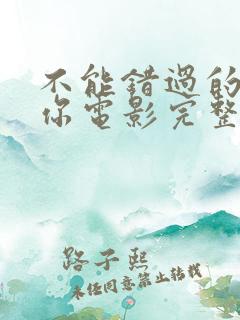 不能錯過的
你電影完整
路子熙
未经同意禁止转载